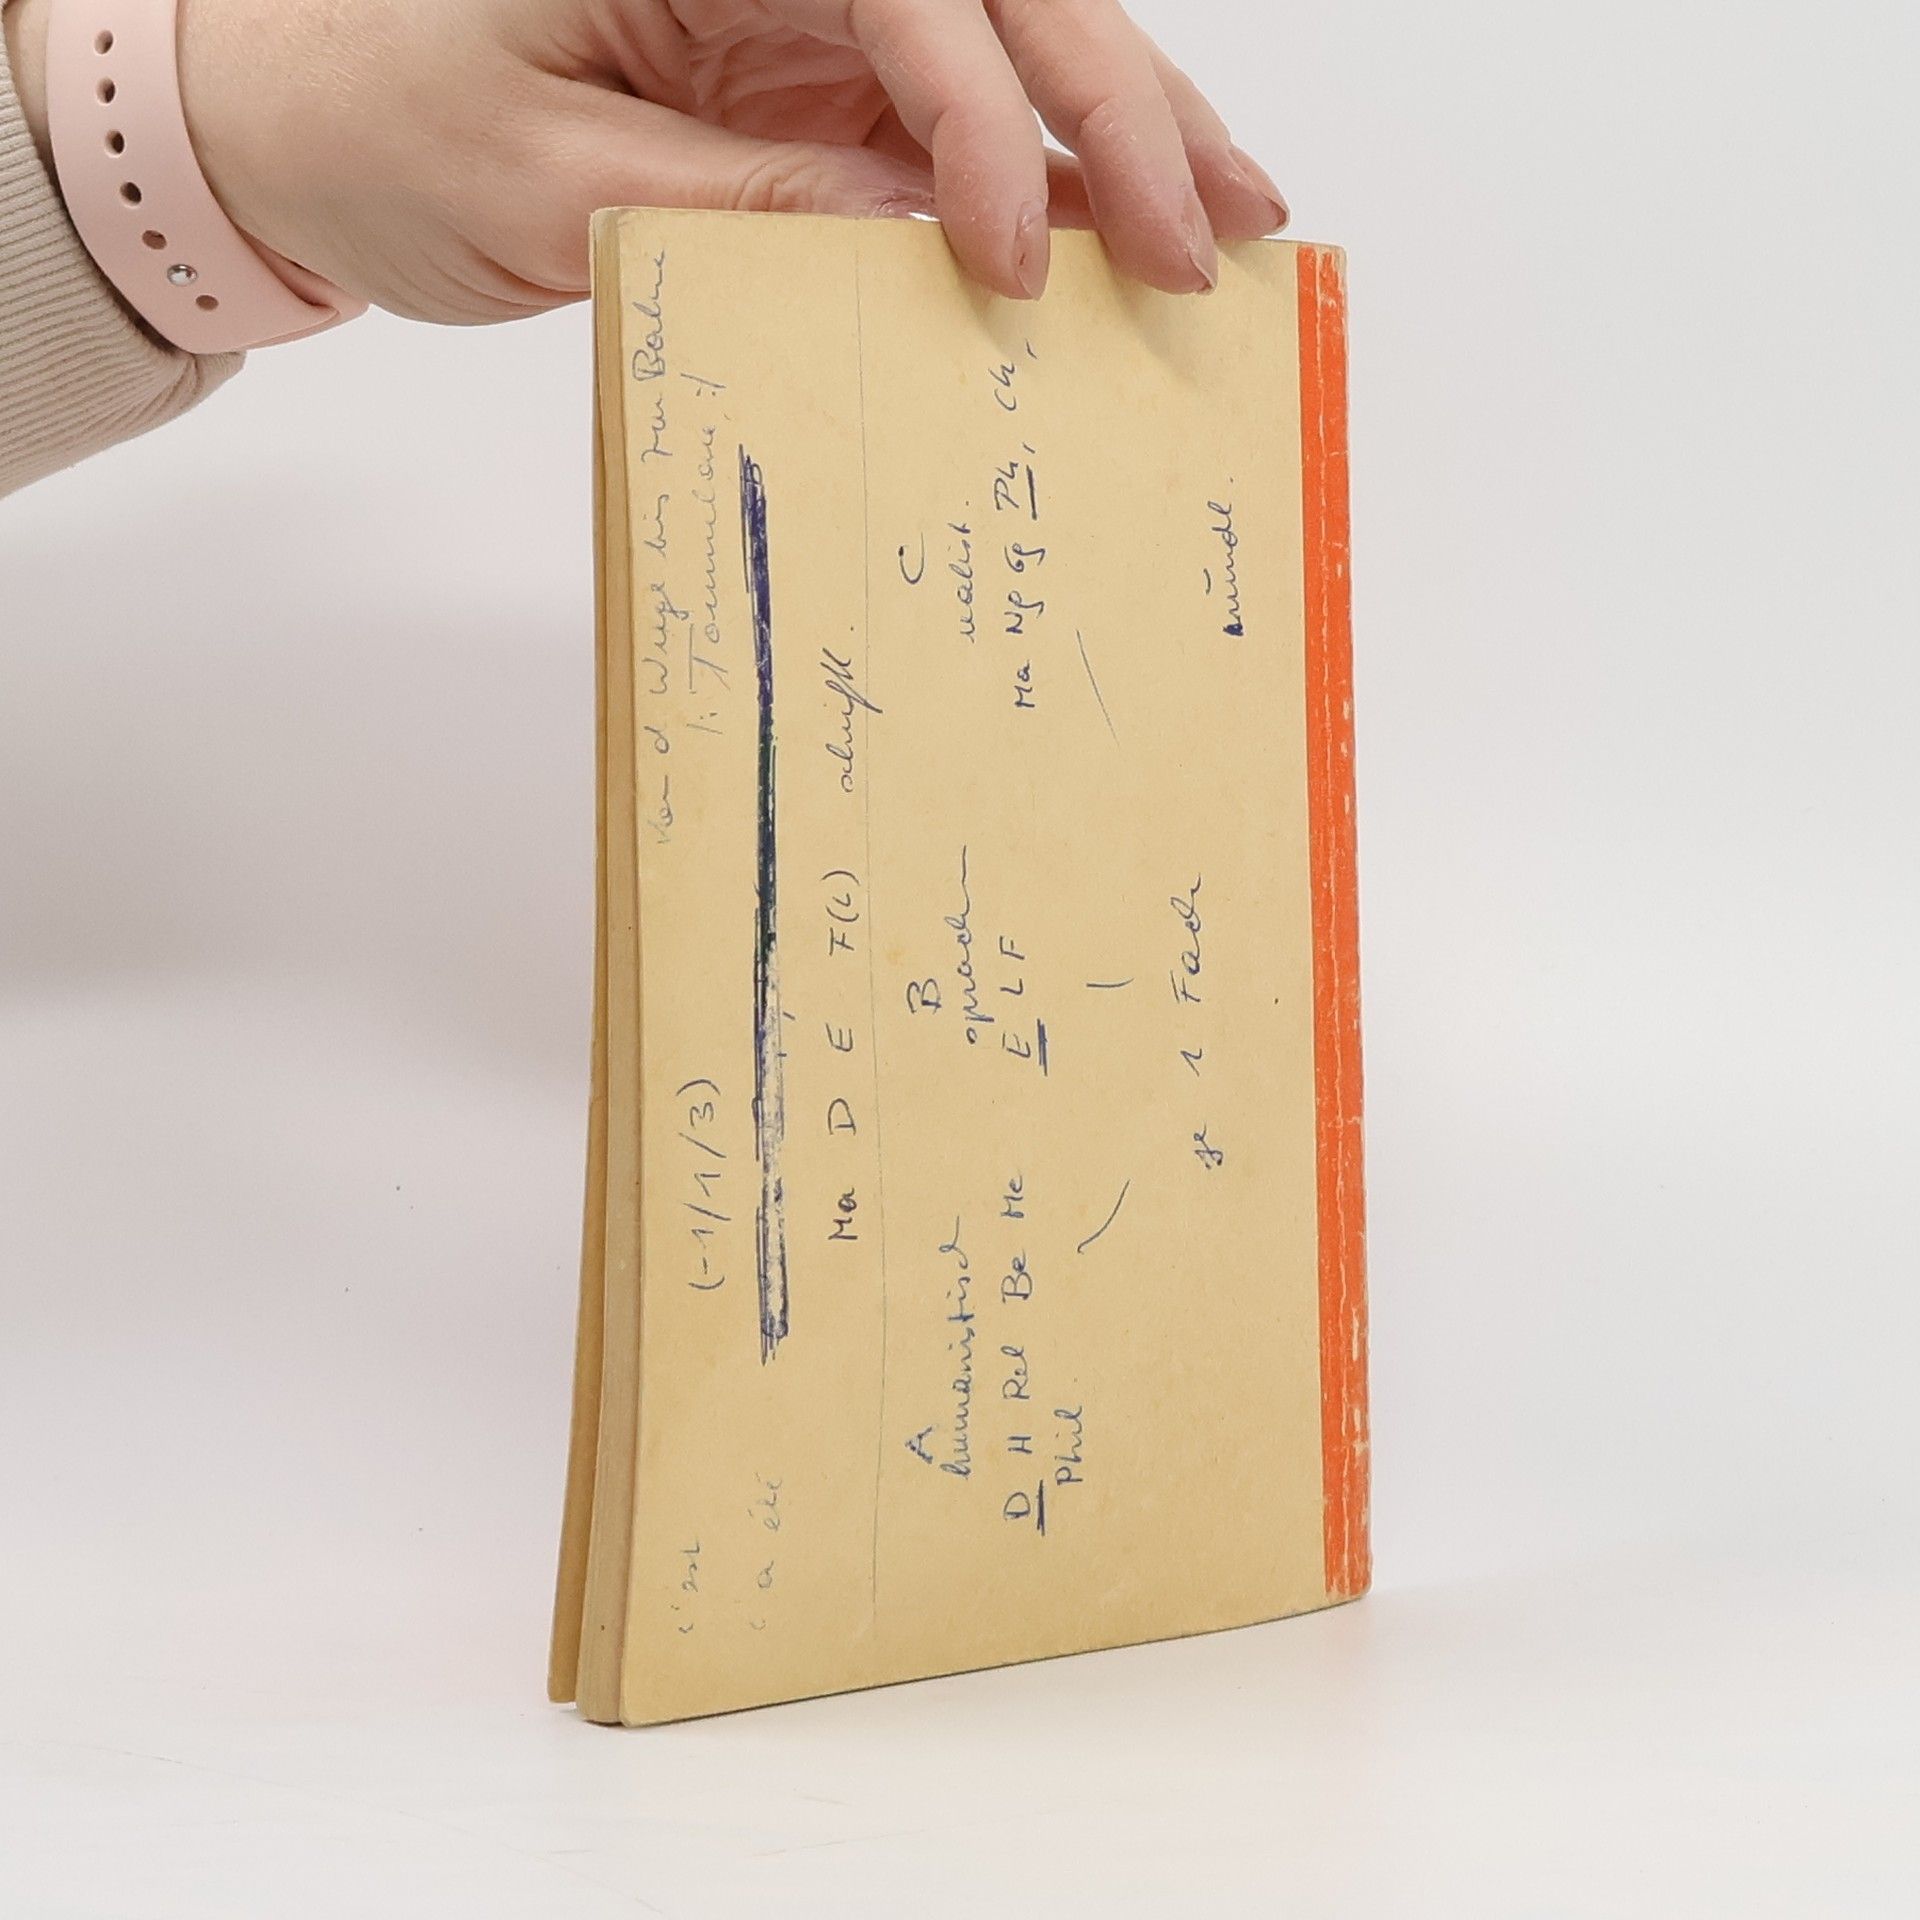 Von d Wiege bis zur Bahre
/: Formulare, :/
c'est (-1/1/3)
ç a été
Ma D E F(L) schriftl.
A B C
humanistisch sprachl realist.
D H Rel Be Me E L F Ma Ng Gg Ph, Ch,
Phil
je 1 Fach
mündl.